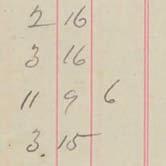 2 16
3 16
11 9 6
3. 15